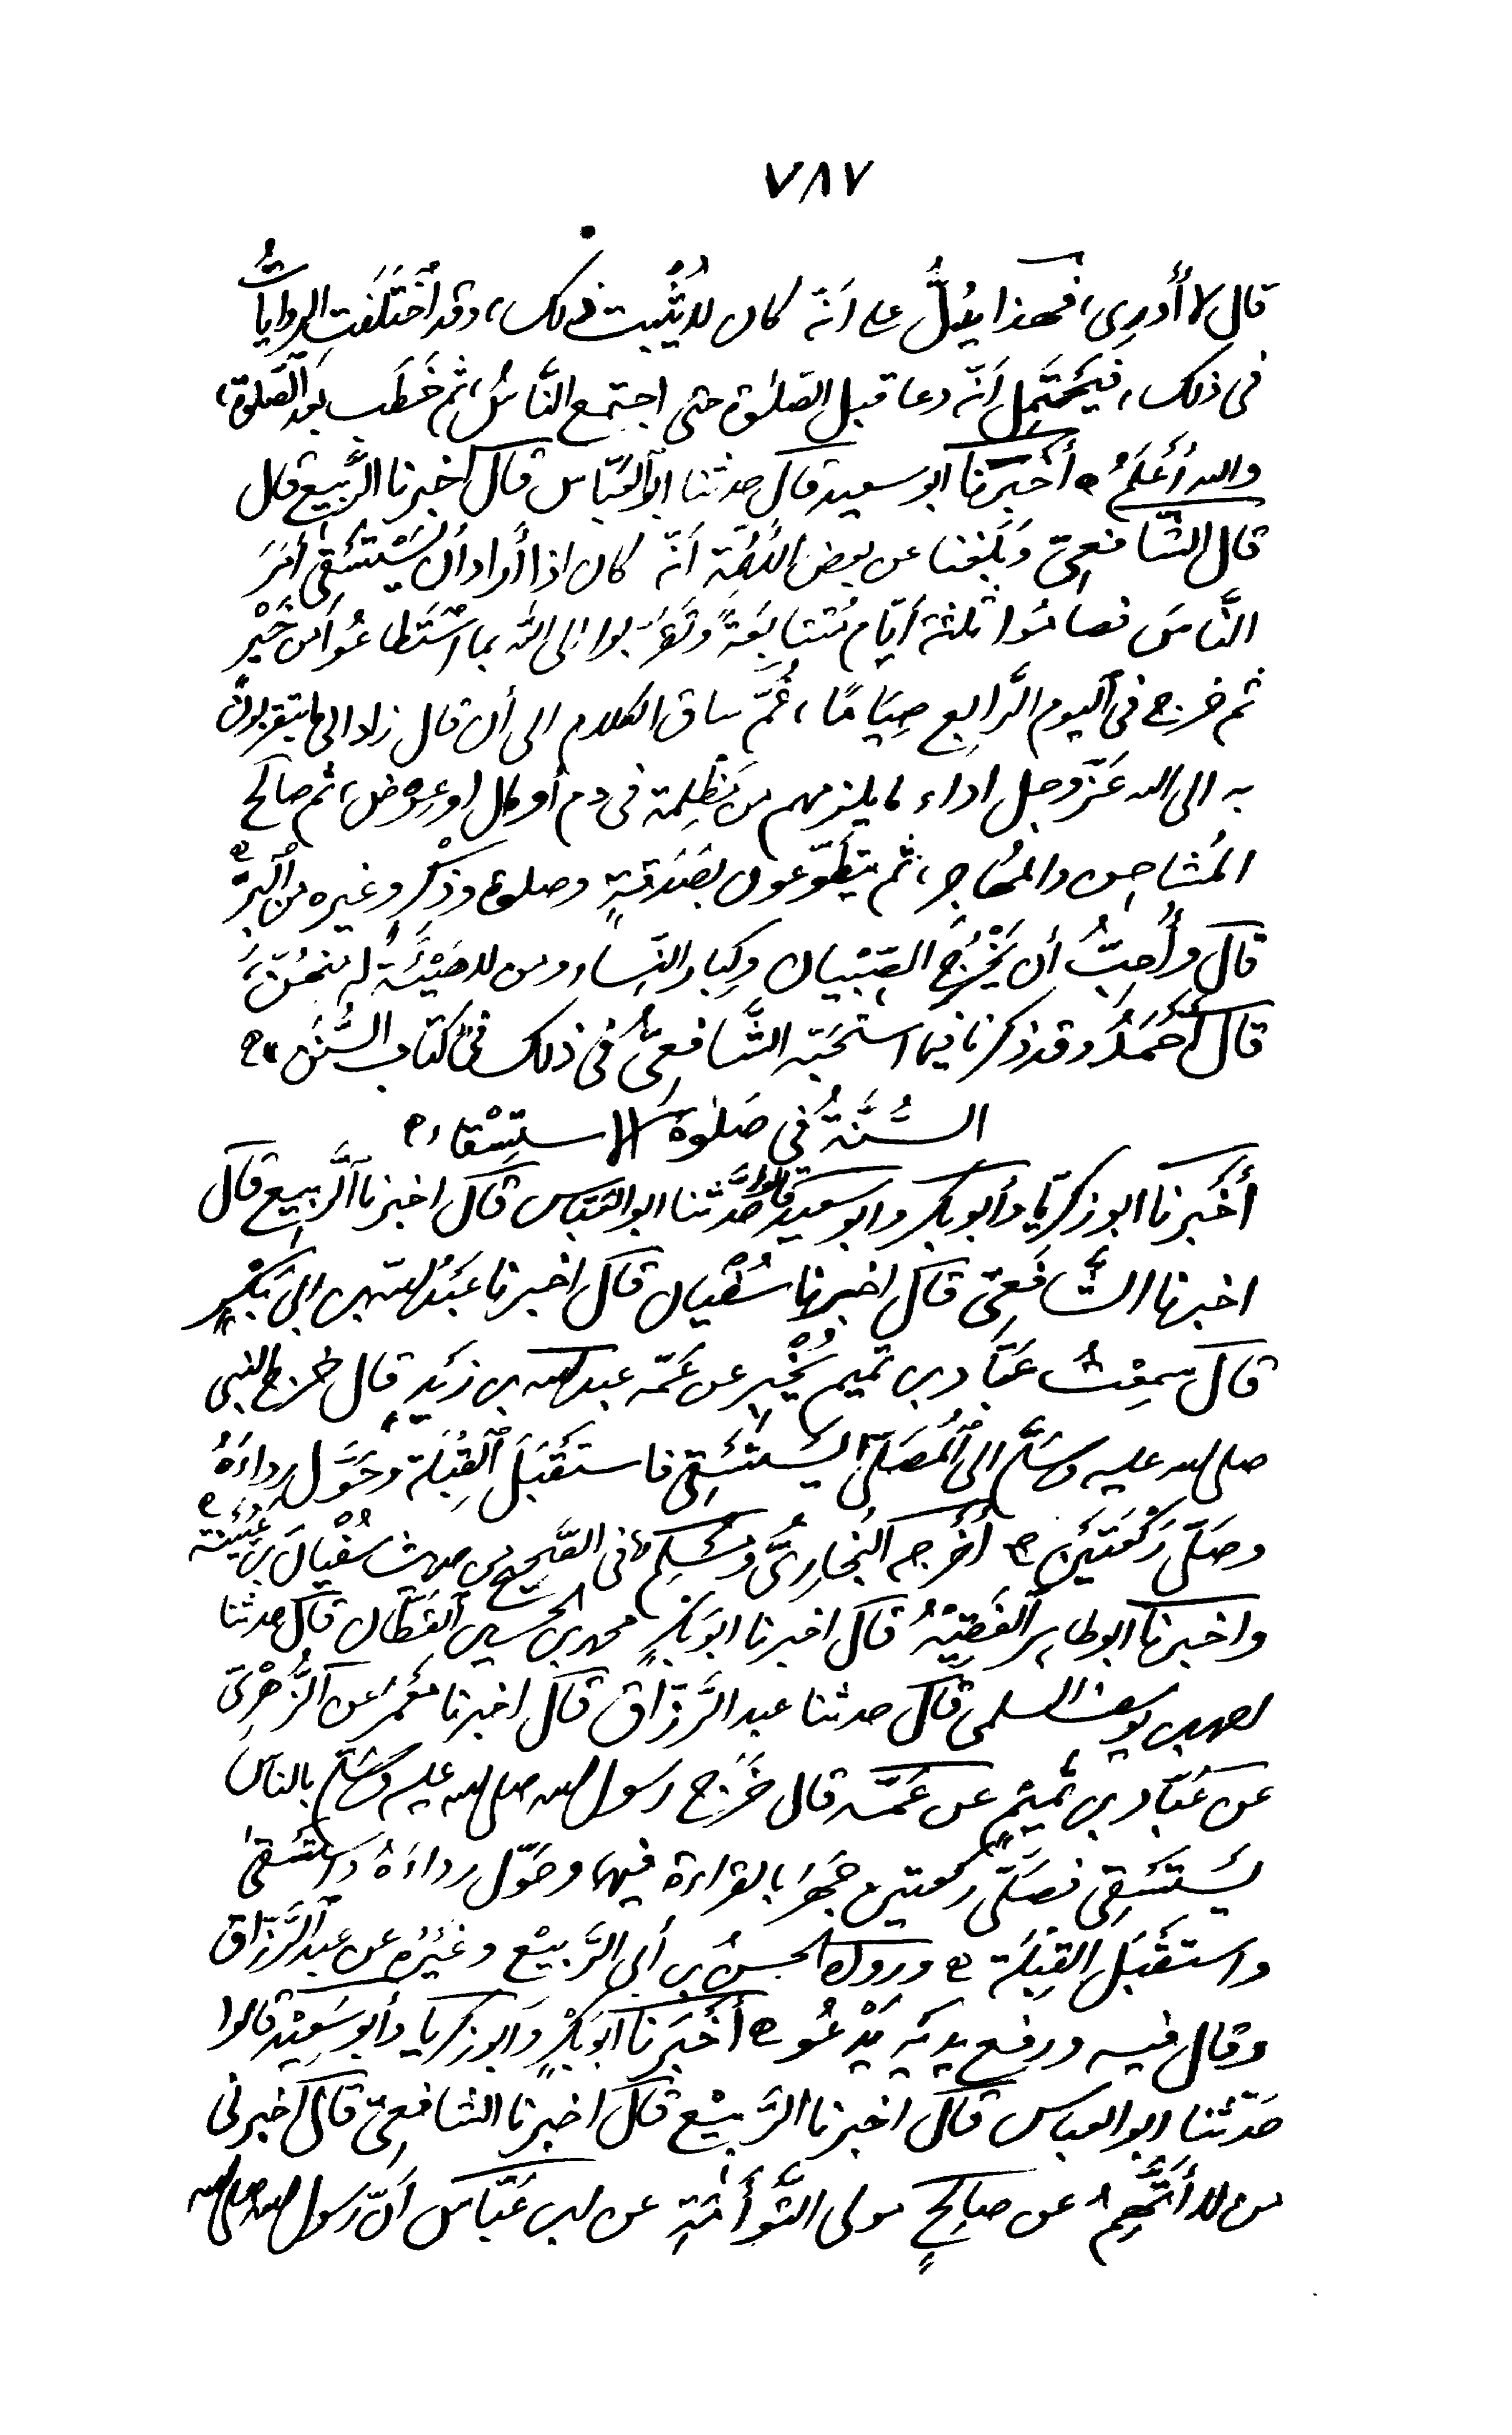 ٧٨٧
قال لا أدرى، فهذا يدلُّ على أنّه كان لا يُثبت ذلك، وقد اختَلَفَتِ الرواياتُ
فى ذلك، فيَحتَمِل أنّه دعا قبل الصّلوة حتى اجتمع النّاسُ، ثم خَطَب بعد الصّلوة،
والله أعلَمُ ه أخبَرَنا ابو سعيد قال حدثنا ابو العبّاس قال اخبرنا الرَّبيع قال
قال الشّافعىّ وبَلَغنا عن بعض الأئمّة أنّه كان اذا أراد أن يَسْتَسْقِى أمَرَ
النَّاسَ فصامُوا ثلثة أيّام مُتتابِعَةً وتَقَرَّبوا الى الله بما اسْتَطاعُوا من خَيْرٍ
ثم خرج فى اليوم الرَّابِع صِيَامًا، ثُمّ ساق الكلام الى أن قال زاد الى ما يتقربون
به الى الله عَزّ وجل اداء ما يلزمهم من مَظلِمة فى دم أو مال او عِرض، ثم صالح
المُشاحِن والمُهاجِر، ثم يتطَوّعون بصَدَقةٍ وصلوة وذِكْرٍ وغيره من البِرِّ ه
قال وأُحِبُّ أن يَخْرُجَ الصِّبْيان وكِبار النّساء ومن لا هَيْئَةَ له منهُنّ،
قال أحمَدُ وقد ذكرنا فيما استحَبّه الشَّافعىُّ فى ذلك فى كتاب السُّنَنِ ه
السُّنَّةُ فى صَلوة الاستِسْقاء ه
أخبَرنا ابو زكرِيّا وأبو بكر وابو سعيد قالوا حَدَّثنا ابو العبّاس قال اخبرنا الرَّبيع قال
اخبرنا الشَّافعىّ قال اخبرنا سُفْيان قال اخبرنا عَبْدُ الله بن ابى بَكْرٍ
قال سمِعْتُ عَبَّاد بن تميم يُخْبِر عن عَمّه عبد الله بن زَيدٍ قال خرج النبى
صلى الله عليه وسلّم الى المُصَلَّى يَستَسْقِى فاستَقْبَلَ القِبْلة وحَوَّل رِداءَهُ
وصَلّى رَكْعَتَينِ ه أخرجه البُخارِىُّ ومُسْلِم فى الصَّحيح من حديث سُفْيانَ بن عُيَيْنَة ه
واخبرنا ابو طاهر الفَقِيْهُ قال اخبرنا ابو بَكْرٍ محمد بن الحسين القَطّان قال حدثنا
احمد بن يوسف السلمى قال حدثنا عبد الرَّزّاق قال اخبرنا مَعْمَر عن الزُّهْرِىّ
عن عَبّاد بن تَمِيْمٍ عن عَمّه قال خَرَج رسول الله صلى الله عليه وسلّم بالناس
يَستَسْقِى فصَلّى ركعتين جَهَرَ بالقراءة فيهما وحَوّل رداءَهُ واسْتَسْقى
واستقْبَل القِبْلَة ه ورواه الحسنُ بن أبى الرَّبيْع وغَيْرُه عن عبد الرَّزّاق
وقال فيه ورفع يديه يَدْعُو ه أخبَرَنا ابو بَكْرٍ وابو زكريا وأبو سَعِيْد قالوا
حَدّثنا ابو العباس قال اخبرنا الرَّبِيْع قال اخبرنا الشافعىّ قال اخبرنى
من لا أتَّهِمُ عن صالِحٍ مولى التَّوأَمَةِ عن ابن عَبّاس أنّ رسول الله صلى الله